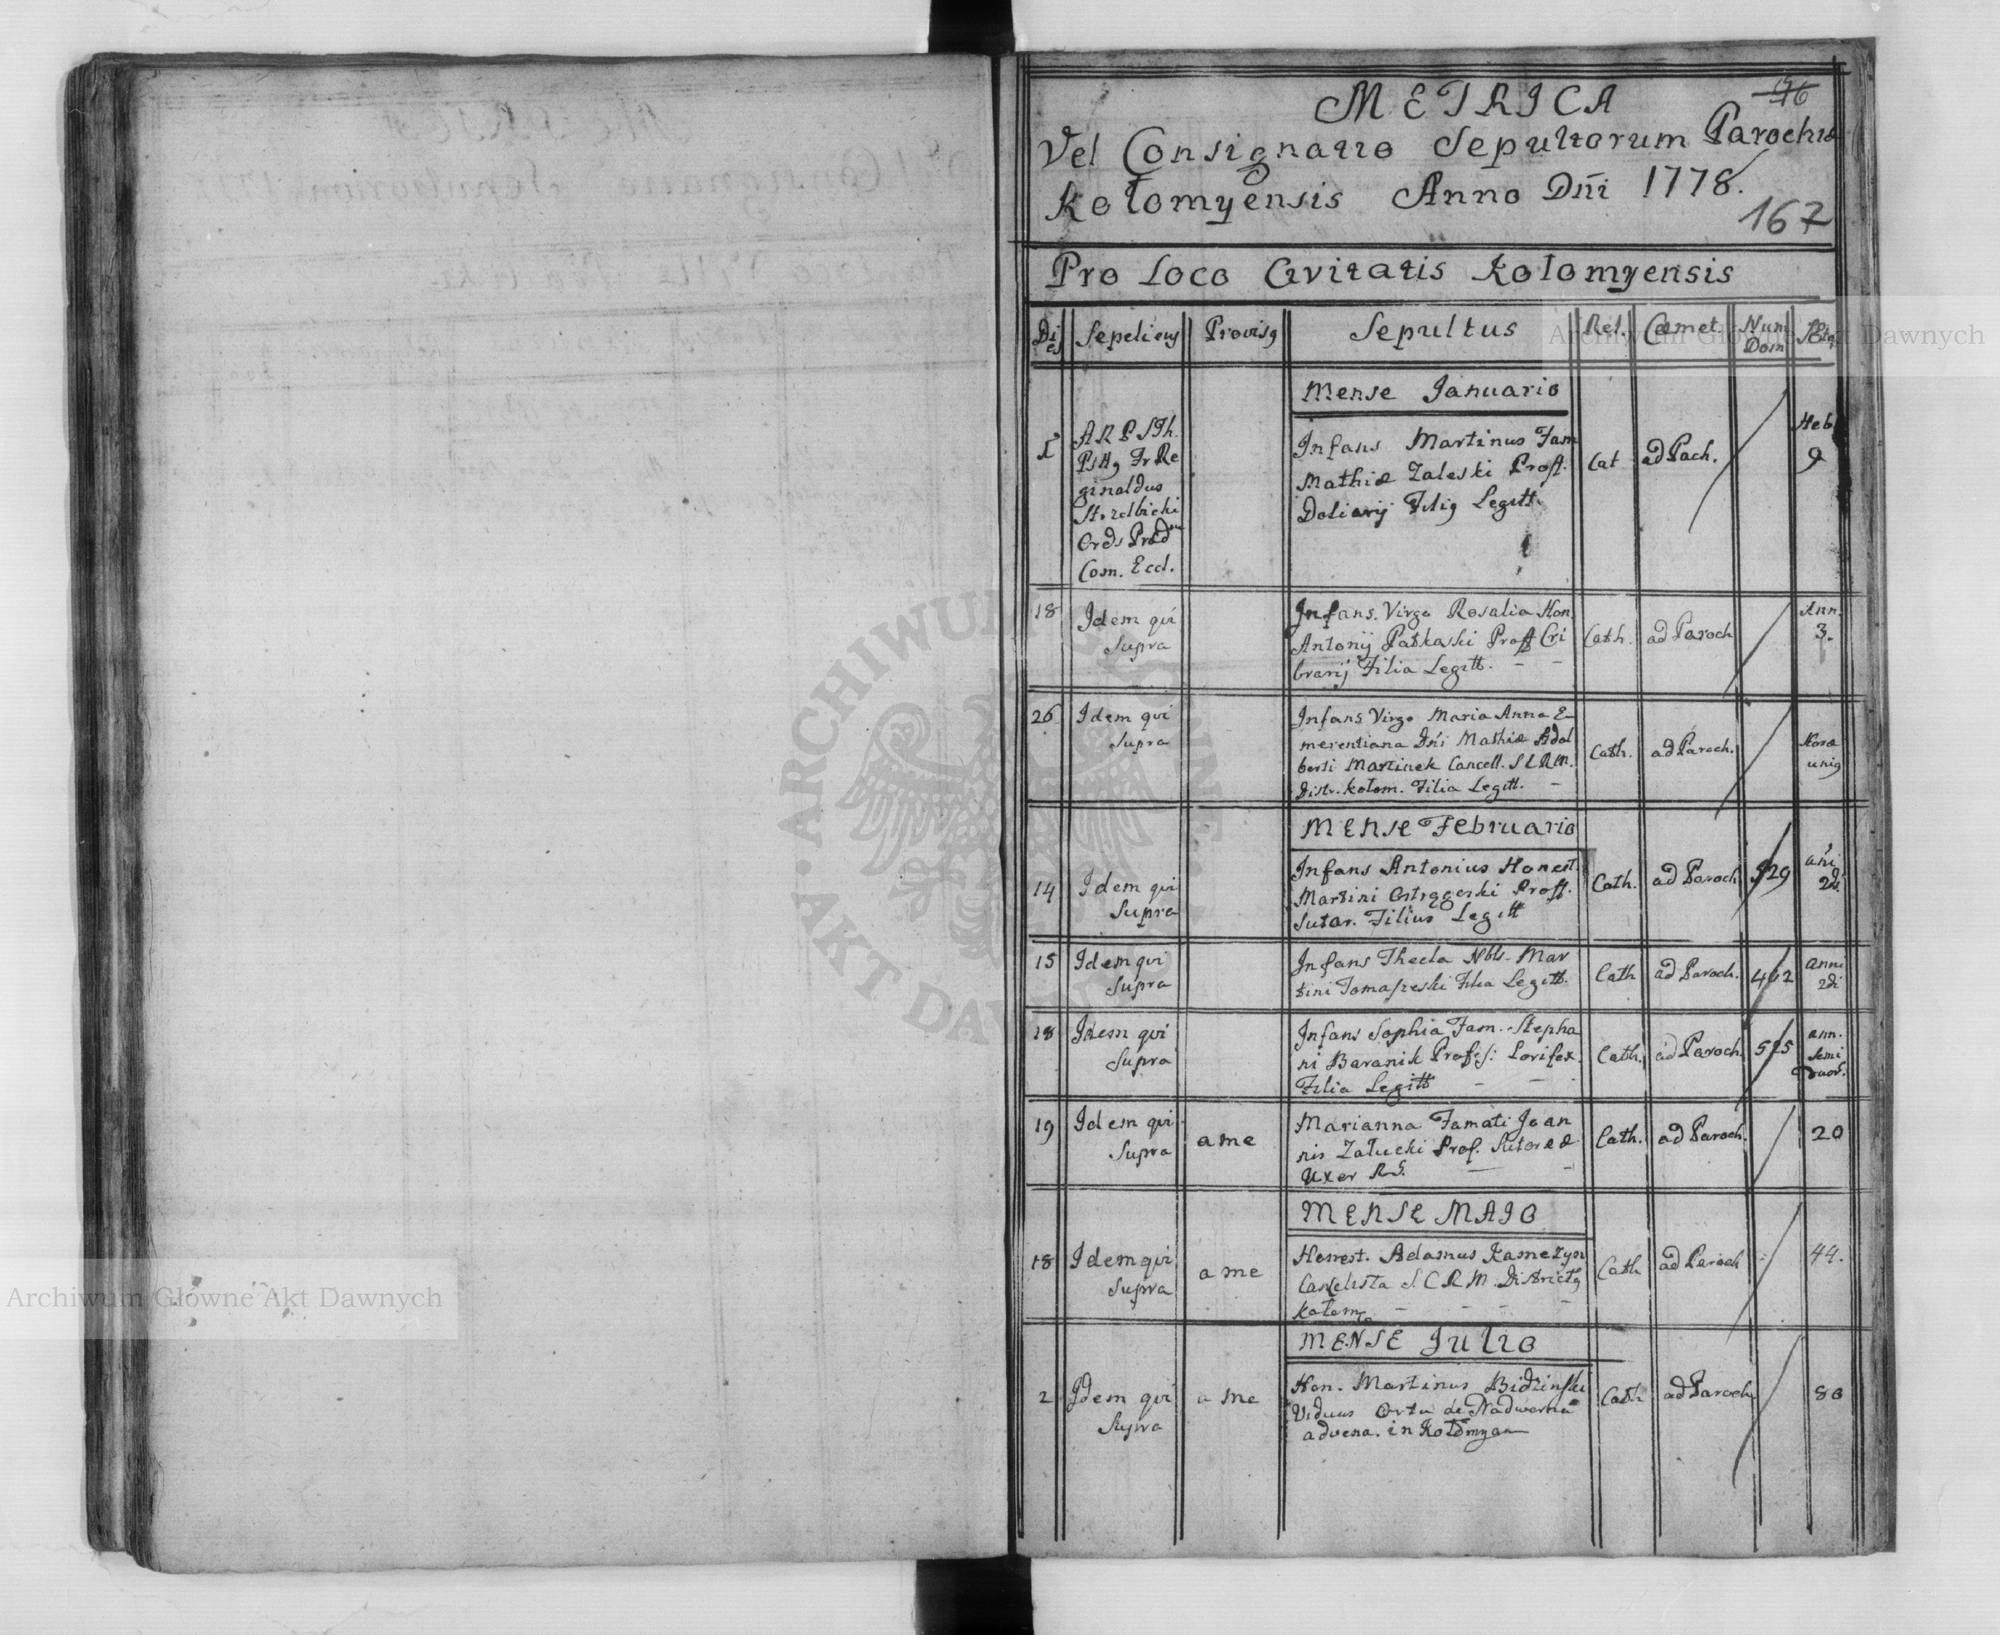 METRICA
Vel Consignatio Sepultorum Parochiæ
Kołomyensis Anno Dñi 1778.
167
Pro Loco Civitatis Kołomyensis
Dies Sepeliens Provisq Sepultus Rel. Cæmet. Num Dom Ætas
Mense Januario
A R P S Th.
Fr Re
ginaldus
Ords Præd
Com. Eccl.
Infans Martinus Fam
Mathiæ Zaleski Proff.
Doliarij Filiq Legitt.
Cat
ad Pach.
Heb
9
18
Idem qui
Supra
Infans. Virgo Rosalia Hon.
Antonij Patkaski Proff Cri
brarij Filia Legitt. - -
Cath.
ad Paroch
Ann.
3.
26
Idem qui
Supra
Infans Virgo Maria Anna E-
merentiana Dñi Mathiæ Adal
berti Martinek Cancell. S C R M.
Distr. Kołom. Filia Legitt. -
Cath.
ad Paroch.
Horæ
uniq
MENSE Februario
14
Idem qui
Supra
Infans Antonius Honest.
Martini Proff.
Sutor. Filius Legitt
Cath.
ad Paroch
529
añi
2di.
15
Idem qui
Supra
Infans Thecla Nbls. Mar
tini Tomaszeski Filia Legitt.
Cath
ad Paroch.
402
anni
2di
18
Idem qui
Supra
Infans Sophia Fam. Stepha
ni Baranik Profes: Lorifex
Filia Legitt - -
Cath.
ad Paroch.
515
ann.
semi
duor.
19
Idem qui
Supra
ame
Marianna Famati Joan
nis Załucki Prof. Sutoreæ
Uxor R.S. - -
Cath.
ad Paroch.
20
MENSE MAJO
18
Idem qui
Supra
ame
Honest. Adamus Kamezyn
Cancelista S C R M. Districtq
Kołom. - - - -
Cath
ad Paroch
44.
MENSE Julio
2
Idem qui
Supra
ame
Hon. Martinus Bidzinski
Viduus Ortu de Nadworna
advena. in Kołomyan
Cath
ad Paroch
80
Archiwum Główne Akt Dawnych
Archiwum Główne Akt Dawnych
ARCHIWUM GŁÓWNE AKT DAWNYCH